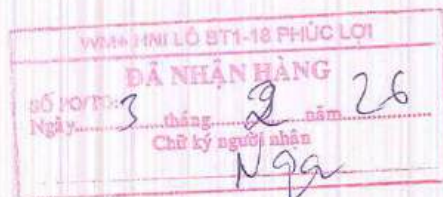 WM+ HNI LÔ BT1-18 PHÚC LỢI
ĐÃ NHẬN HÀNG
SỐ PO/TO:
Ngày 3 tháng 2 năm 26
Chữ ký người nhận
Nga